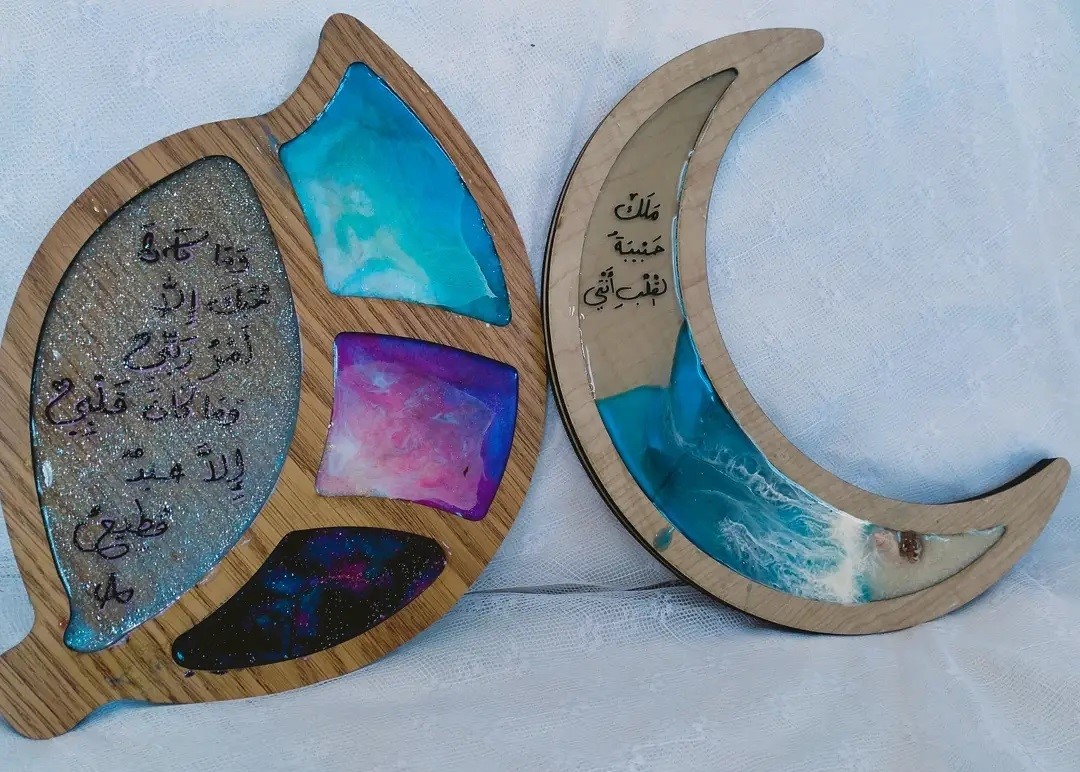 وَمَا كَانَ
حُبُّكَ إِلَّا
أَمْرُ رَبِّي
وَمَا كَانَ قَلْبِي
إِلاَّ عبدٌ
مُطيعٌ
مَلَكْ
حَبْيبَةٌ
لقَلْبِ أَنْتي